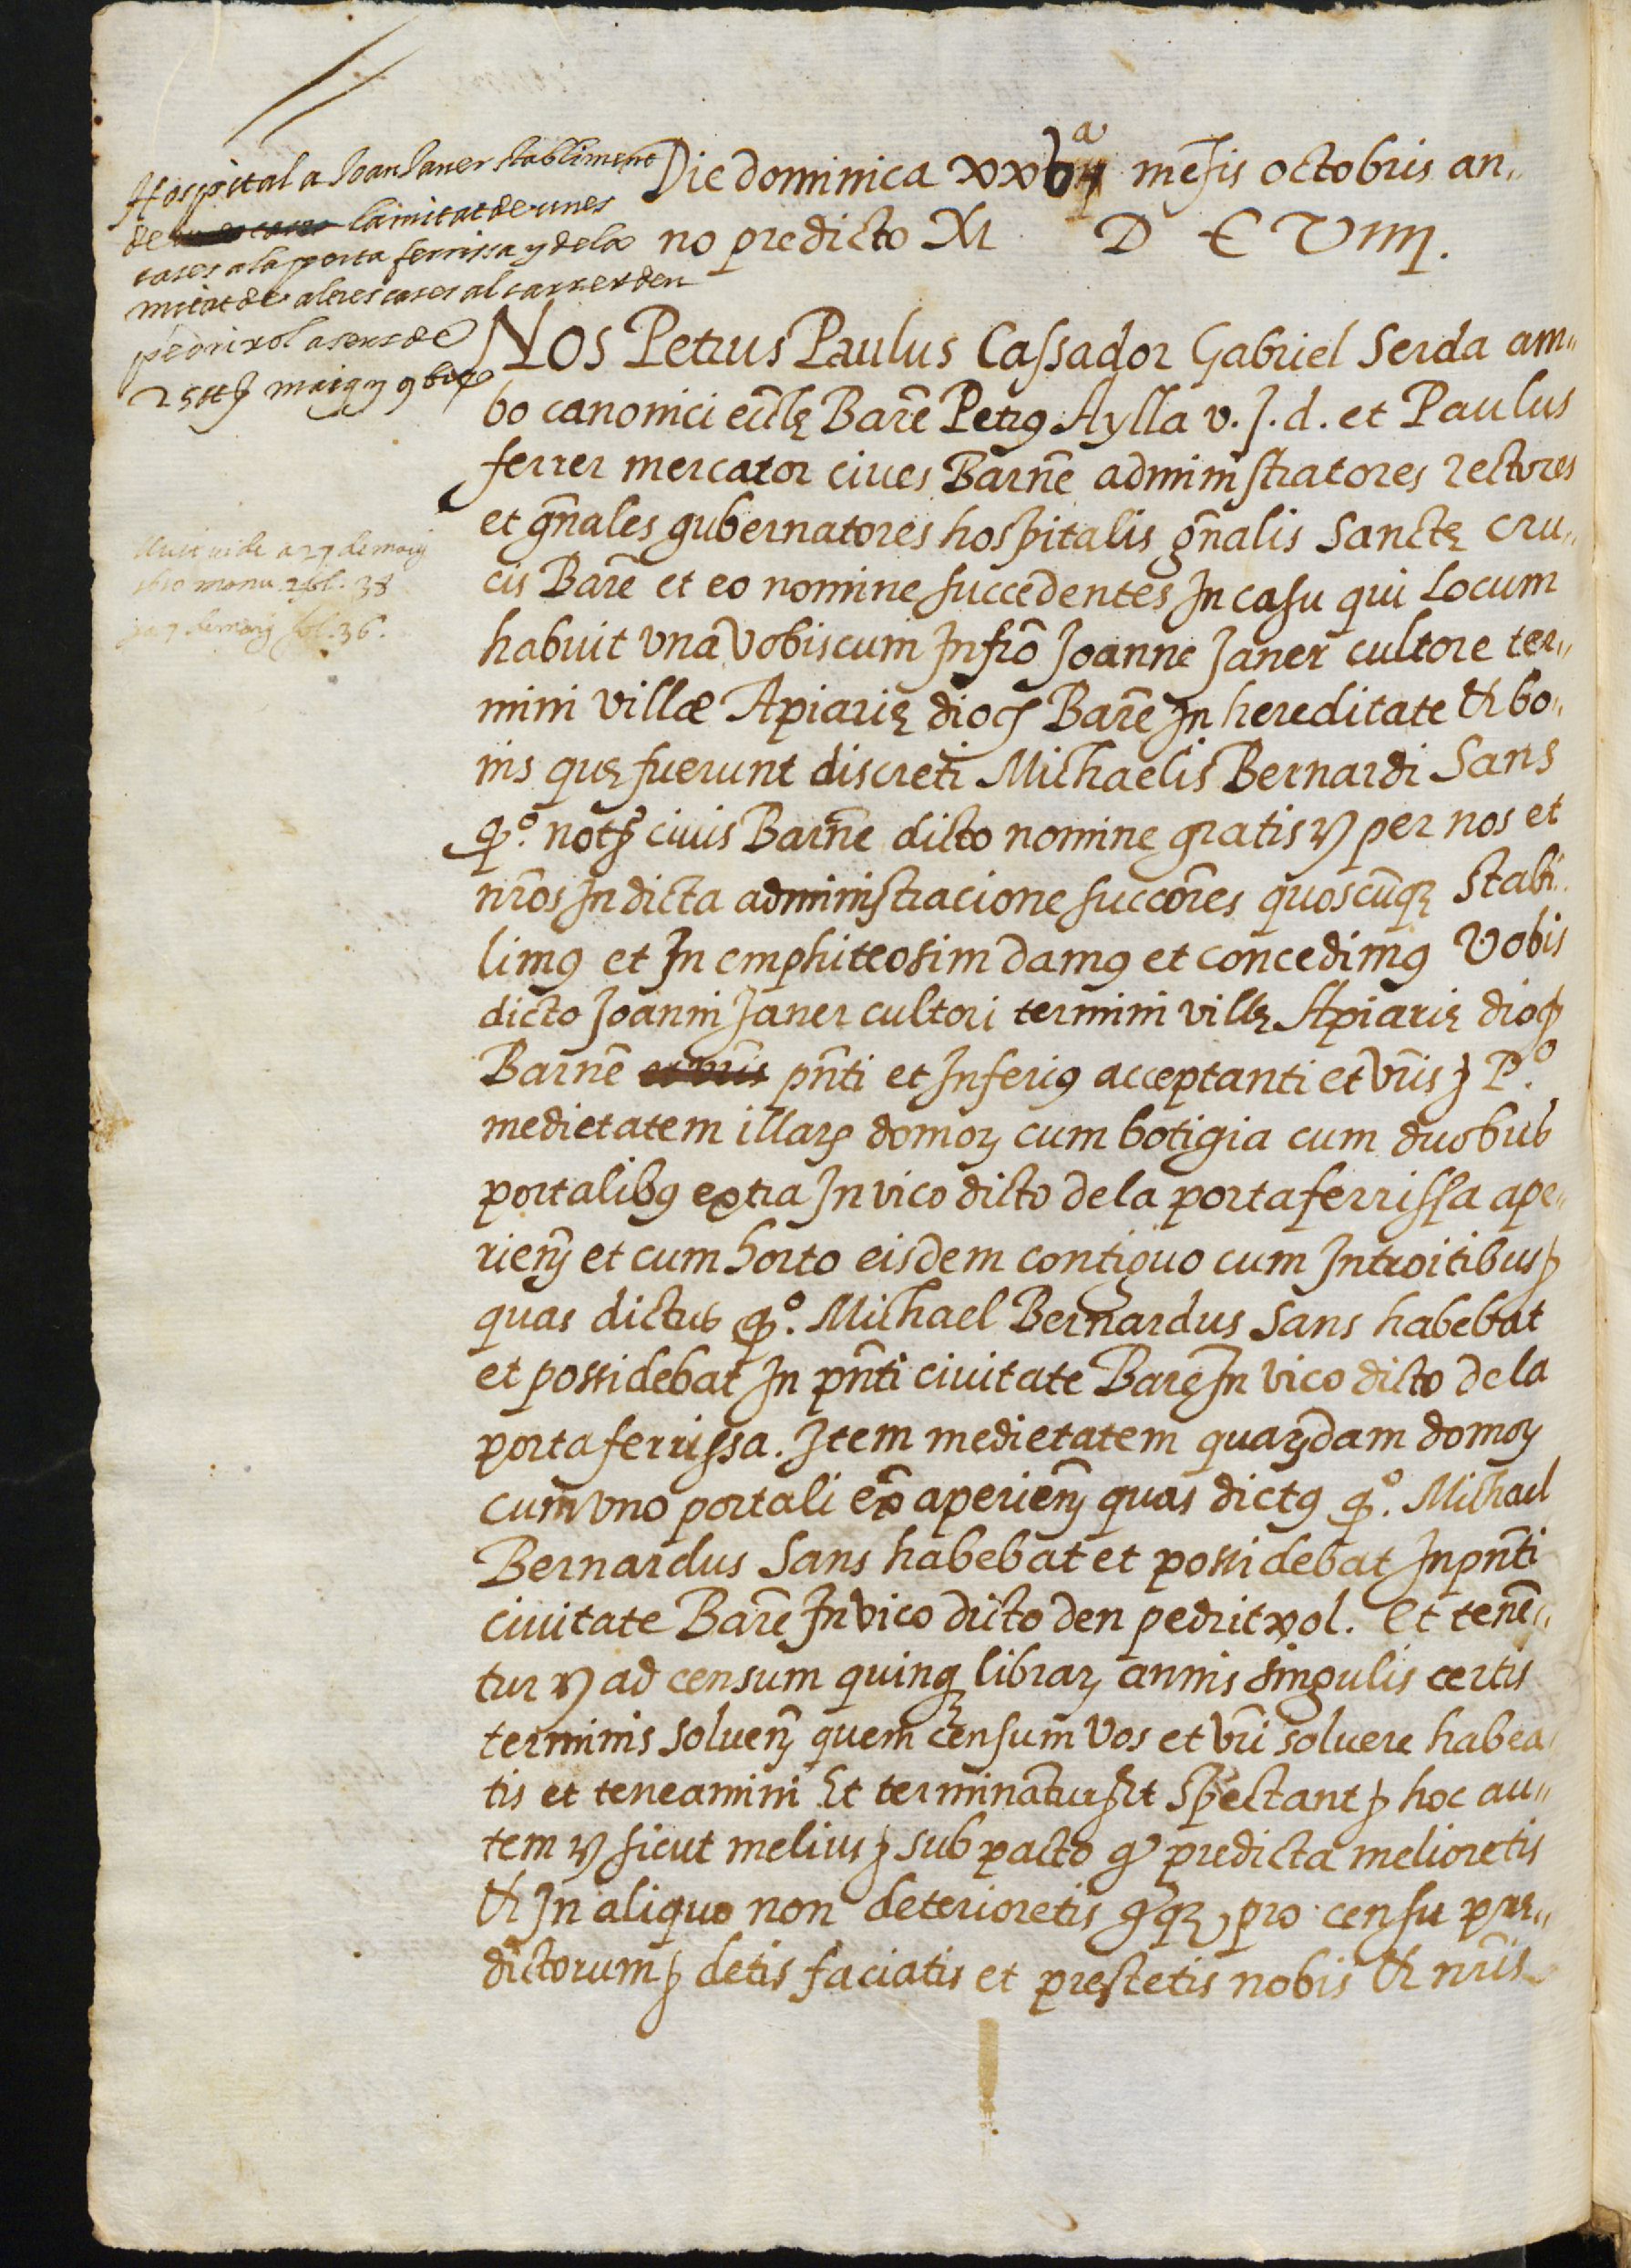 Hospital a Joan Janer stabliment
de la mitat de unes
cases a la porta ferrissa y de la
mitat de altres cases al carrer den
pedrixol a sens de
25 maig y 9bre
a 27 de maig
1610 manu. 2 fol. 38
de maig fol. 36.
Die dominica xxv^a mẽsis octobris an,,
no predicto M D C VIIII.
Nos Petrus Paulus Cassador Gabriel Serda am,,
bo canonici eccłę Barc̃ Petrꝰ Aylla v. J. d. et Paulus
ferrer mercator ciues Barñe administratores rectores
et gñales gubernatores hospitalis gñalis Sanctę cru,,
cis Barc̃ et eo nomine succedentes In casu qui Locum
habuit vna Vobiscum Infr̃o Joanne Janer cultore ter,,
mini villæ Apiarię dioc̃ Barc̃ In hereditate & bo,,
nis quę fuerunt discreti Michaelis Bernardi Sans
qº. notʒ ciuis Barñe dicto nomine gratis ꝛ per nos et
nr̃os In dicta administracione succõres quoscũqȝ stabi,,
limꝰ et In emphiteosim damꝰ et concedimꝰ Vobis
dicto Joanni Janer cultori termini villę Apiarię dioc̃
Barñe pñti et Inferiꝰ acceptanti et vr̃is ꝫ P.º
medietatem illarꝝ domoꝝ cum botigia cum duobus
portalibꝰ extra In vico dicto de la portaferrissa ape,,
rienꝭ et cum horto eisdem contiguo cum Introitibus ꝫ
quas dictus qº. Michael Bernardus Sans habebat
et possidebat In pñti ciuitate Barc̃ In vico dicto de la
portaferrissa. Item medietatem quaꝝdam domoꝝ
cum vno portali ex̃ aperienꝭ quas dictꝰ qº. Michael
Bernardus Sans habebat et possidebat In pñti
ciuitate Barc̃ In vico dicto den pedritxol. Et tenẽ,,
tur ꝛ ad censum quinqȝ libraꝝ annis singulis certis
terminis soluenꝭ quem censum Vos et vr̃i soluere habea
tis et teneamini Et terminãtur Et Spectant ꝫ hoc au,,
tem ꝛ sicut melius ꝫ sub pacto qᵒ predicta melioretis
& In aliquo non deterioretis qᵒqȝ pro censu prę,,
dictorum ꝫ detis faciatis et prestetis nobis & nr̃is